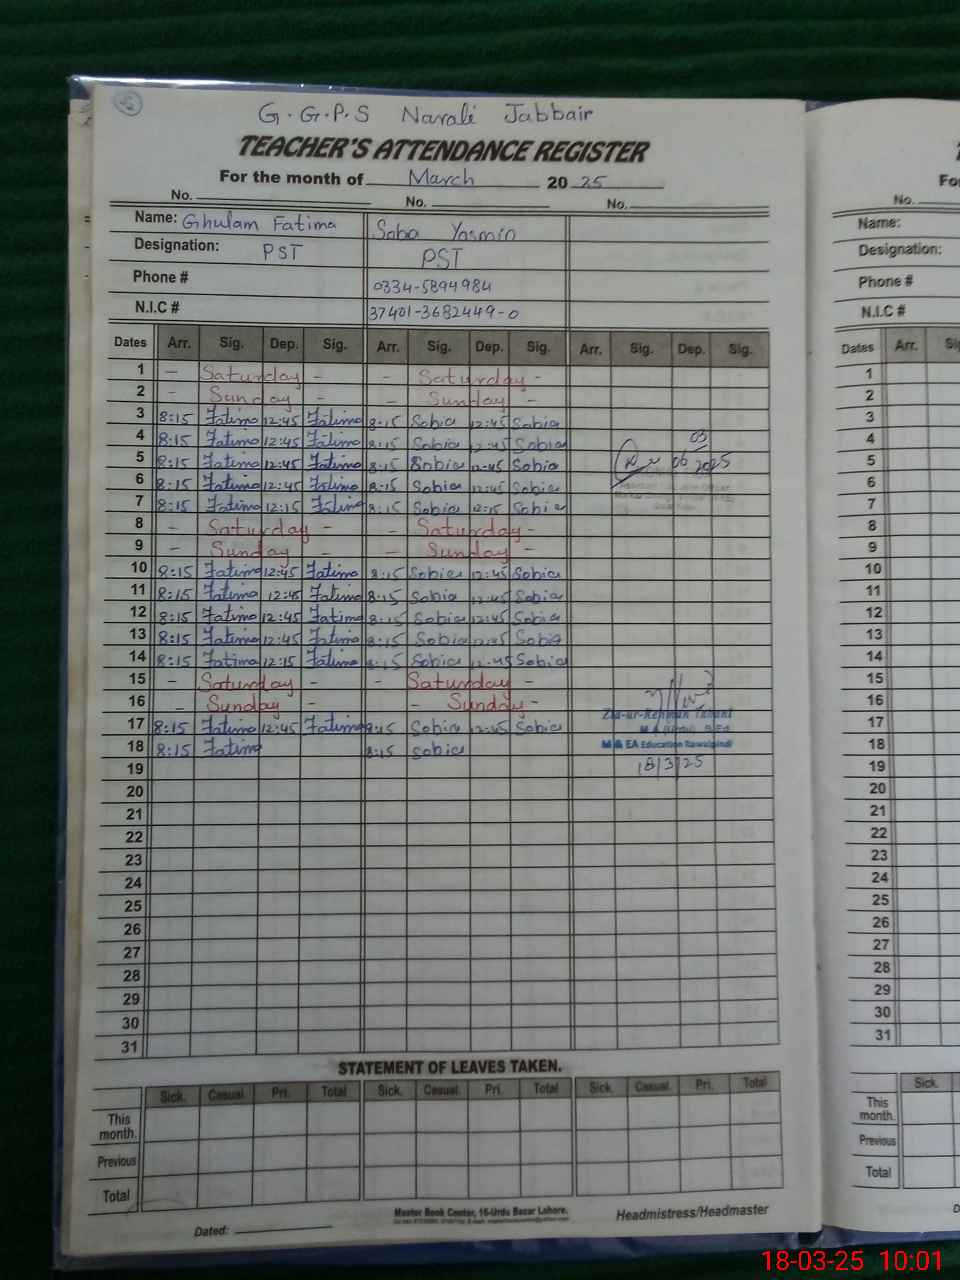 G.G.P.S Narali Jabbair
TEACHER'S ATTENDANCE REGISTER
For the month of March 20 25
No. No. No.
Name: Ghulam Fatima Saba Yasmin
Designation: PST PST
Phone # 0334-5894984
N.I.C # 37401-3682449-0
Dates Arr. Sig. Dep. Sig. Arr. Sig. Dep. Sig. Arr. Sig. Dep. Sig.
1 - Saturday - - Saturday -
2 - Sunday - - Sunday -
3 8:15 Fatima 12:45 Fatima 8:15 Sobia 12:45 Sobia
4 8:15 Fatima 12:45 Fatima 8:15 Sobia 12:45 Sobia 03
5 8:15 Fatima 12:45 Fatima 8:15 Sobia 12:45 Sobia 06 2025
6 8:15 Fatima 12:45 Fatima 8:15 Sobia 12:45 Sobia
7 8:15 Fatima 12:15 Fatima 8:15 Sobia 12:15 Sobia
8 - Saturday - - Saturday -
9 - Sunday - - Sunday -
10 8:15 Fatima 12:45 Fatima 8:15 Sobia 12:45 Sobia
11 8:15 Fatima 12:45 Fatima 8:15 Sobia 12:45 Sobia
12 8:15 Fatima 12:45 Fatima 8:15 Sobia 12:45 Sobia
13 8:15 Fatima 12:45 Fatima 8:15 Sobia 12:45 Sobia
14 8:15 Fatima 12:15 Fatima 8:15 Sobia 12:45 Sobia
15 - Saturday - - Saturday -
16 - Sunday - - Sunday -
17 8:15 Fatima 12:45 Fatima 8:15 Sobia 12:45 Sobia
18 8:15 Fatima 8:15 Sobia
Zia-ur-Rehman
M & EA Education Rawalpindi
18/3/25
19
20
21
22
23
24
25
26
27
28
29
30
31
STATEMENT OF LEAVES TAKEN.
Sick. Casual. Pri. Total Sick. Casual. Pri. Total Sick. Casual. Pri. Total
This month.
Previous
Total
Master Book Center, 16-Urdu Bazar Lahore.
Dated: Headmistress/Headmaster
No.
Name:
Designation:
Phone #
N.I.C #
Dates Arr.
1
2
3
4
5
6
7
8
9
10
11
12
13
14
15
16
17
18
19
20
21
22
23
24
25
26
27
28
29
30
31
Sick.
This month.
Previous
Total
18-03-25 10:01